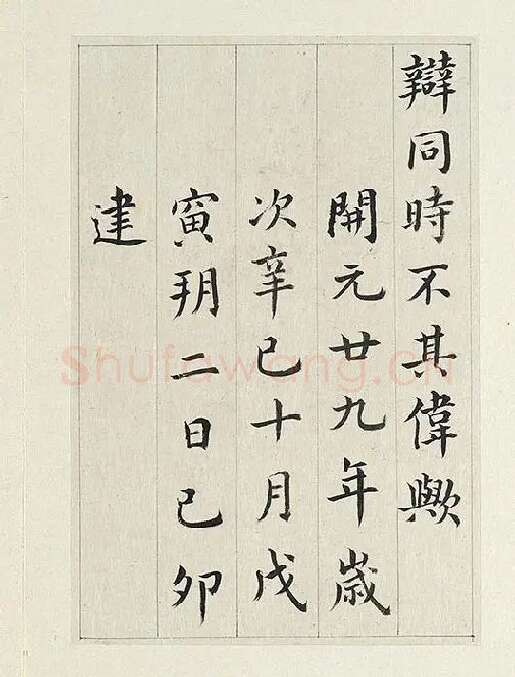 辯同時不其偉歟
開元廿九年歳
次辛巳十月戊
寅玥二日已卯
建
Shufawang.cn